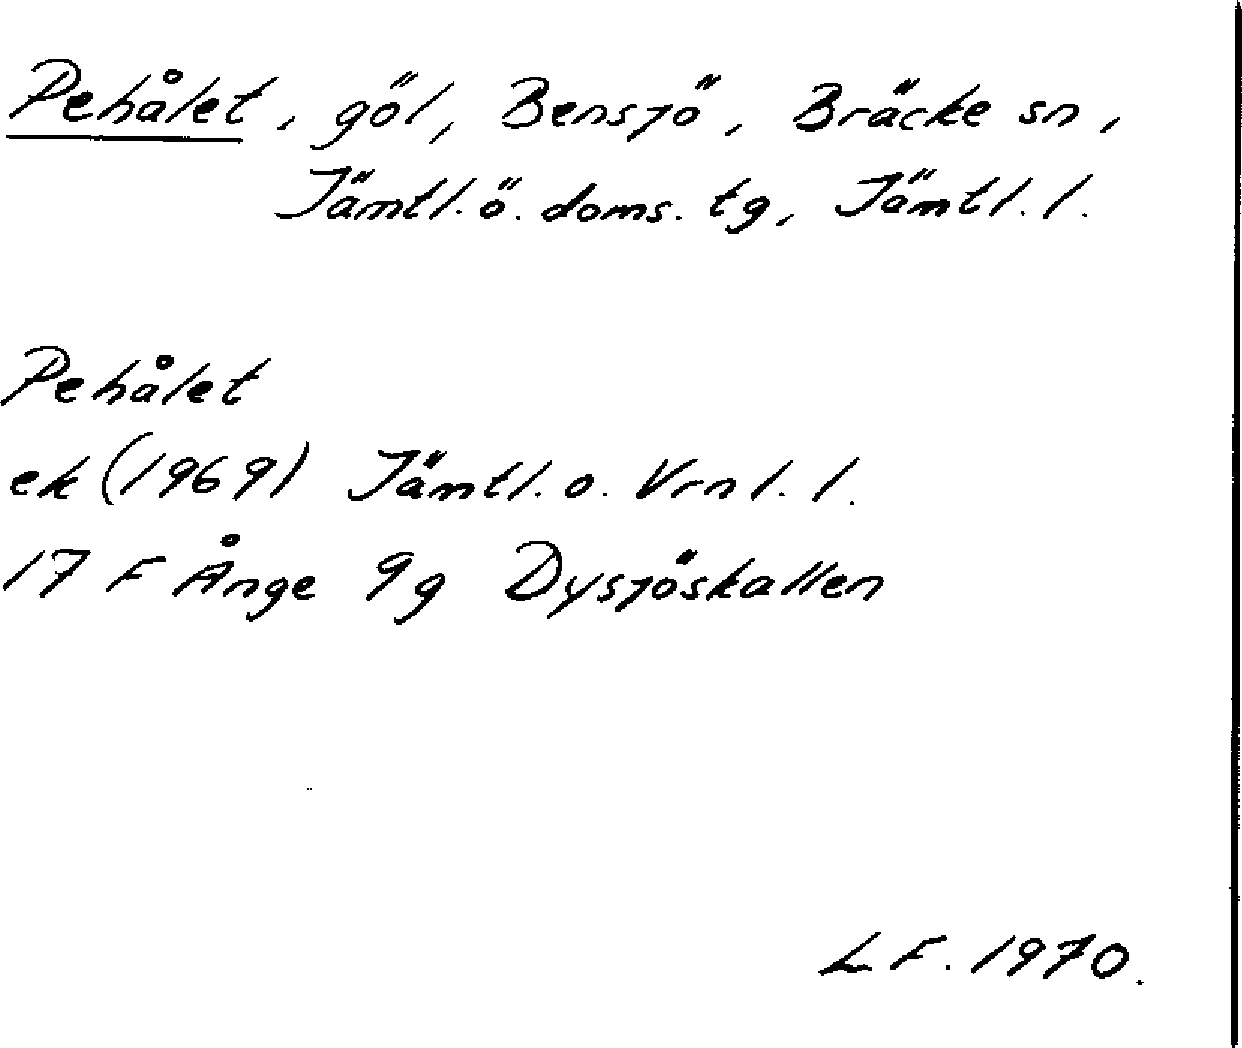 Pehålet, göl, Bensjö, Bräcke sn,
Jämtl. ö. doms. tg, Jämtl. l.
Pehålet
ek (1969) Jämtl. o. Vrnl. l.
17 F Ånge 9g Dysjöskallen
LF. 1970.